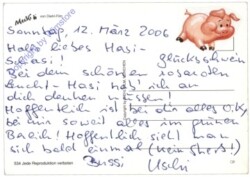 Sonntag, 12. März 2006
Hallo liebes Hasi-
Schasi!
Glücksschwein
Bei dem schönen rosaroten
Hasi hab' ich an
dich denken müssen!
Hoffentlich ist bei dir alles O.K.,
bei mir soweit alles im grünen
Bereich! Hoffentlich sieht man
sich bald einmal (kein Scherz!)
Bussi
Uschi
Jede Reproduktion verboten